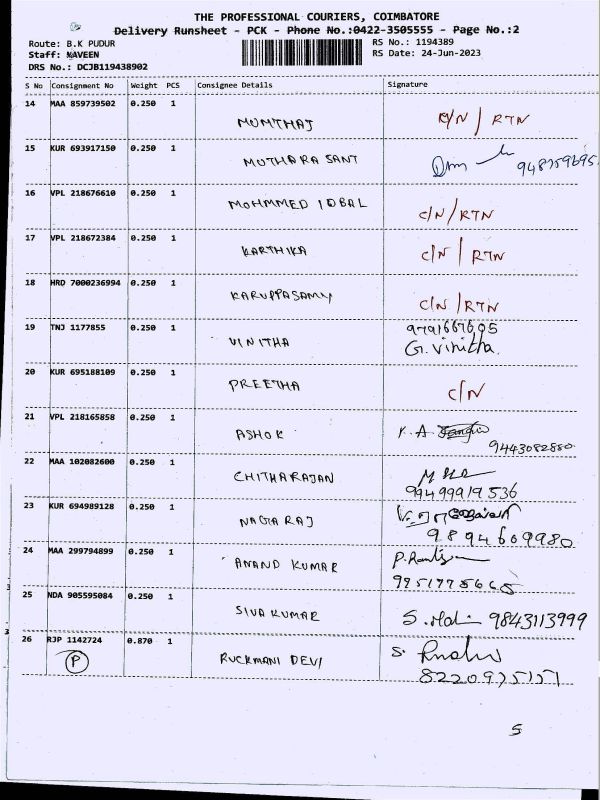 THE PROFESSIONAL COURIERS, COIMBATORE
Delivery Runsheet - PCK - Phone No.:0422-3505555 - Page No.:2
Route: B.K PUDUR
RS No.: 1194389
Staff: NAVEEN
RS Date: 24-Jun-2023
DRS No.: DCJB119438902
S No Consignment No Weight PCS Consignee Details Signature
14 MAA 859739502 0.250 1 MUMTHAJ C/N / RTN
15 KUR 693917150 0.250 1 MUTHARASANT
16 VPL 218676610 0.250 1 MOHMMED IQBAL C/N / RTN
17 VPL 218672384 0.250 1 KARTHIKA C/N / RTN
18 HRD 7000236994 0.250 1 KARUPPASAMY C/N / RTN
19 TNJ 1177855 0.250 1 VINITHA
G. Vinitha
20 KUR 695188109 0.250 1 PREETHA C/N
21 VPL 218165858 0.250 1 ASHOK
9443082880
22 MAA 102082600 0.250 1 CHITHARAJAN
23 KUR 694989128 0.250 1 NAGARAJ
9894609980
24 MAA 299794899 0.250 1 ANAND KUMAR
25 NDA 905595084 0.250 1 SIVAKUMAR 9843113999
26 RJP 1142724 0.870 1 RUCKMANI DEVI
P
5